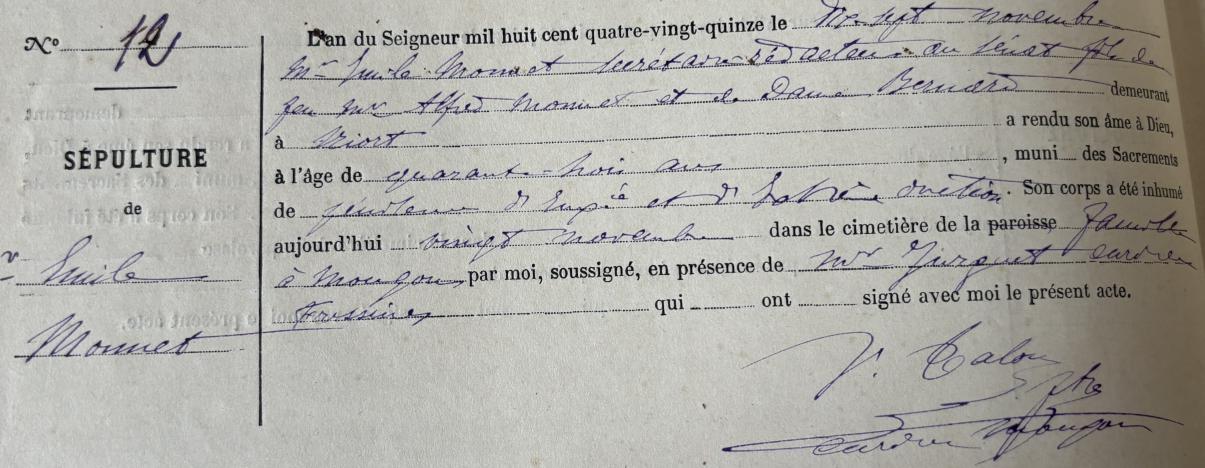 Nº 12
SÉPULTURE
de
Mr Emile
Monnet
L'an du Seigneur mil huit cent quatre-vingt-quinze le dix sept novembre
Mr Emile Monnet secrétaire rédacteur au Sénat fils de
feu Mr Alfred Monnet et de Dame Bernard demeurant
à Niort a rendu son âme à Dieu,
à l'âge de quarante-trois ans, muni des Sacrements
de pénitence d' et d'Extrême onction. Son corps a été inhumé
aujourd'hui vingt novembre dans le cimetière de la paroisse famille
à Mougon, par moi, soussigné, en présence de Mr curé de
qui ont signé avec moi le présent acte.
Ptre
curé de Mougon